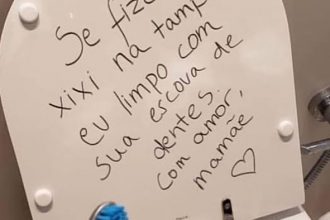 Se fize
xixi na tamp
eu limpo com
sua escova de
dentes.
com amor,
mamãe ♡